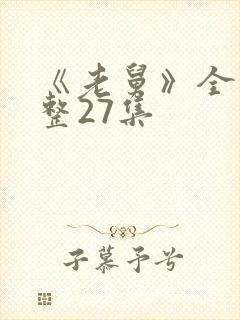 《老舅》全
整27集
子慕予兮